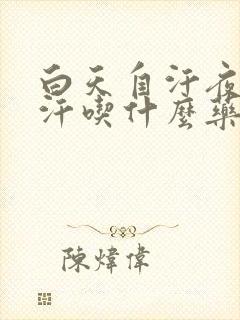 白天自汗夜
汗喫什麼藥
陳煒偉